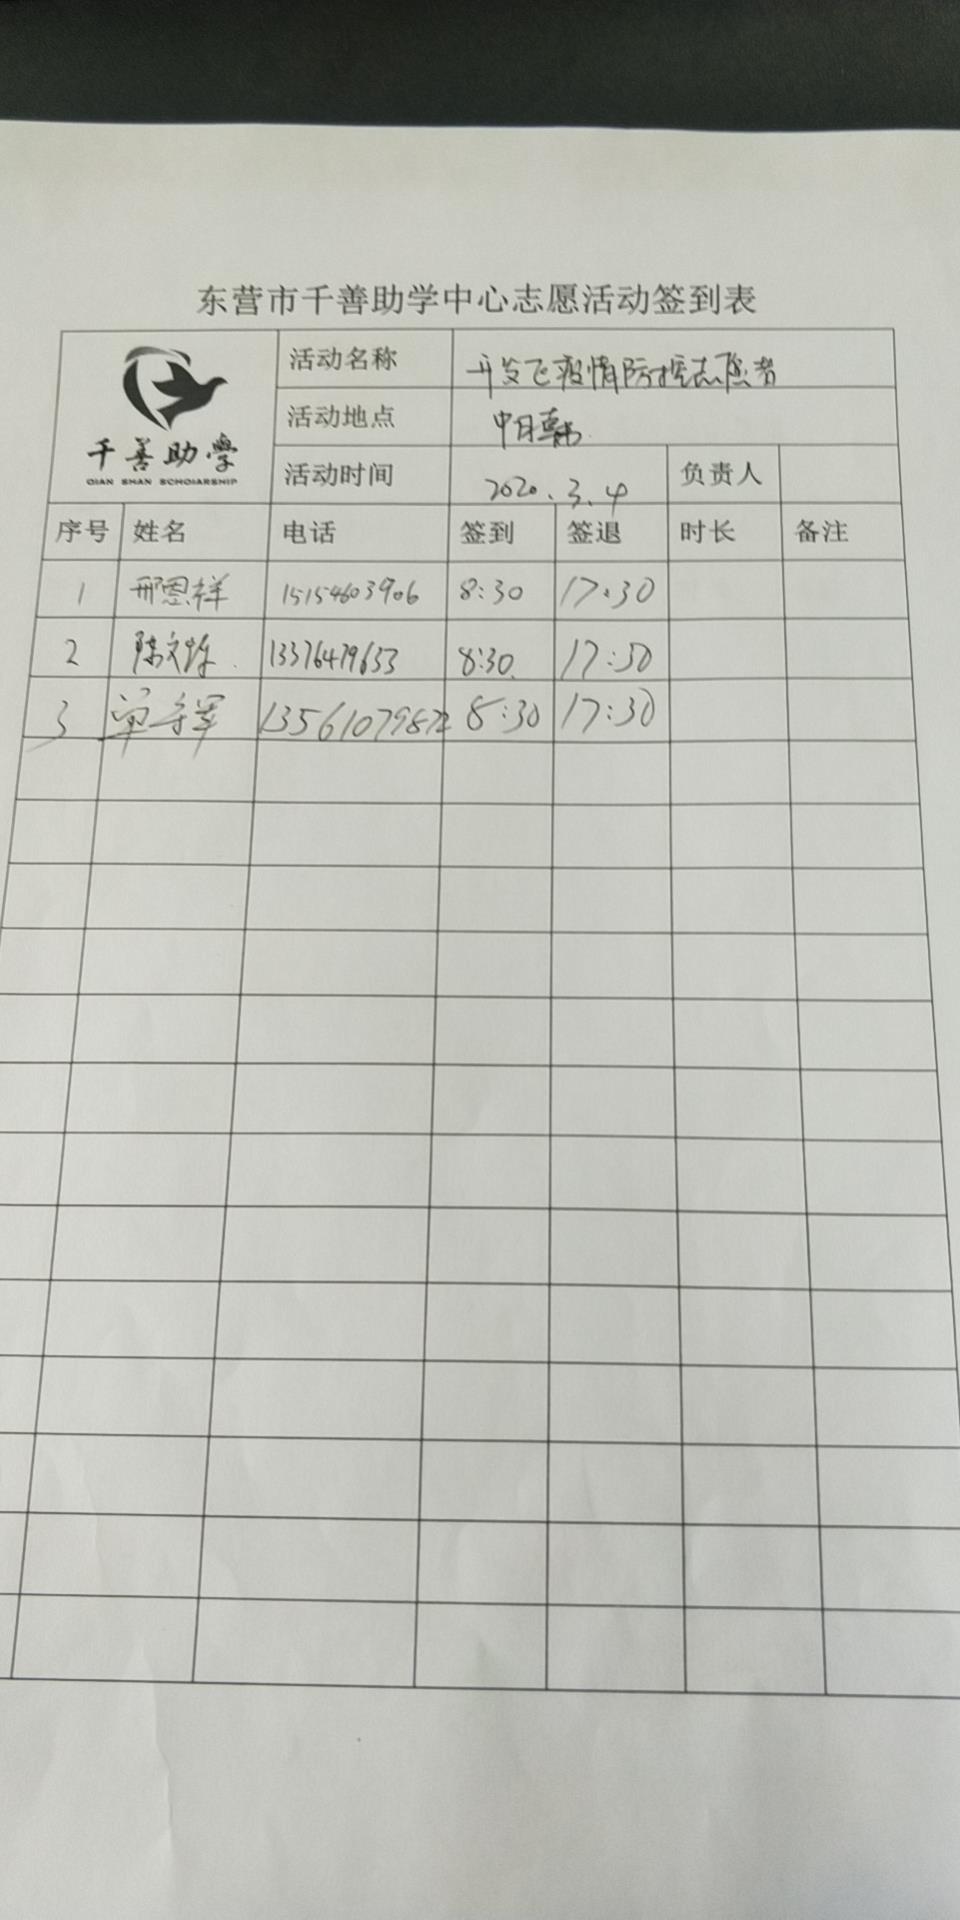 东营市千善助学中心志愿活动签到表
千善助學
QIAN SHAN SCHOLARSHIP
活动名称 开发区疫情防控志愿者
活动地点 中日韩
活动时间 2020.3.4 负责人
序号 姓名 电话 签到 签退 时长 备注
1 邢恩祥 15154603906 8:30 17:30
2 陈文 13376479633 8:30 17:30
3 单 13561079872 8:30 17:30